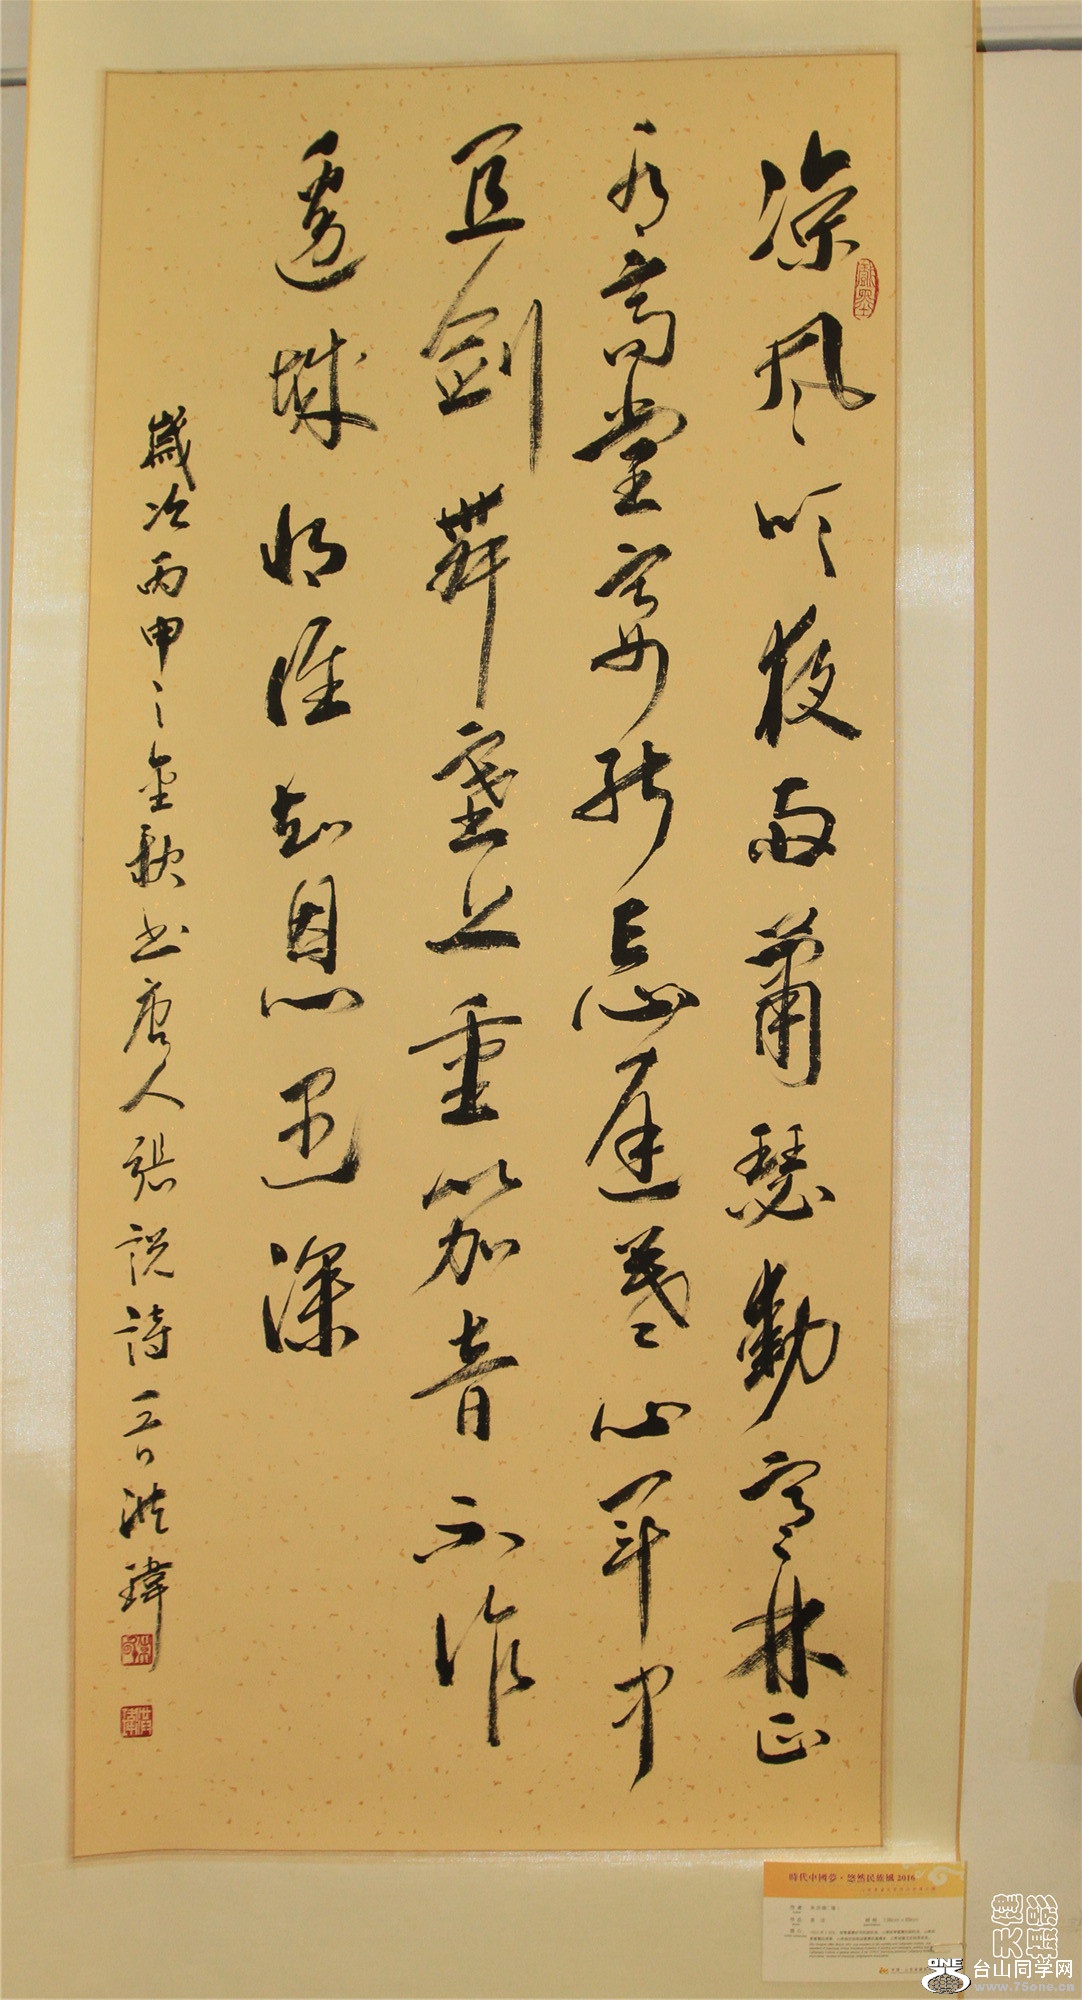 凉风吹夜雨萧瑟動寒林正
有高堂宴能忘遲暮心軍中
宜劍舞塞上重笳音不作
邊城将谁知恩遇深
歲次丙申之金秋书唐人張説詩 洪瑋
時代中國夢·悠然民族風2016
ONE
台山同学网
www.75one.cn